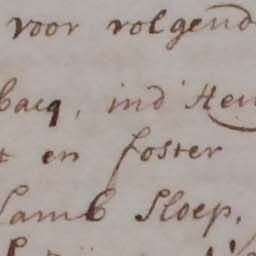 voor volgend
bacq, ind Hen
t en foster
Lamb Sloep,